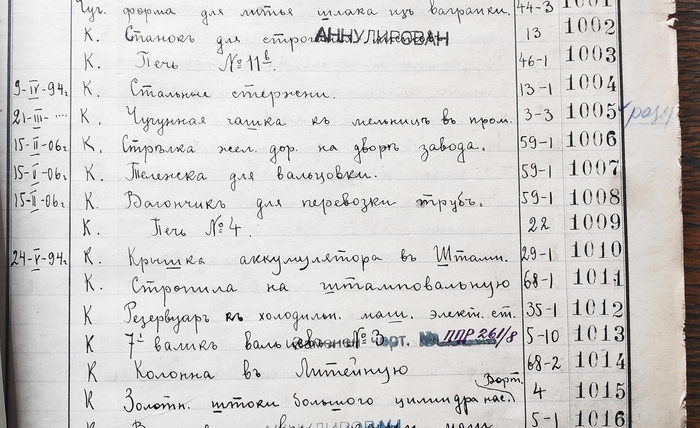 Чуг. форма для литья шлака изъ вагранки. 44-3 1001
К. Станокъ для АННУЛИРОВАН 13 1002
К. Печь № 11в 46-1 1003
9-IV-94г. К. Стальные стержни. 13-1 1004
21-III- К. Чугунная чашка къ мельницъ въ пром. 3-3 1005
15-II-06г. К. Стрѣлка жел. дор. на дворъ завода. 59-1 1006
15-II-06г. К. Тележка для вальцовки. 59-1 1007
15-II-06г. К. Вагончикъ для перевозки трубъ. 59-1 1008
К. Печь № 4. 22 1009
24-V-94г. К. Крышка аккумулятора въ Штамп. 29-1 1010
К. Стропила на штамповальную 68-1 1011
К Резервуаръ къ холодильн. маш. электн. ст. 35-1 1012
К 7й валикъ № 3 ППР 261/8 5-10 1013
К Колонна въ Литейную 68-2 1014
К Золотн. штоки большого цилиндра нас. Ворт. 4 1015
К 5-1 1016